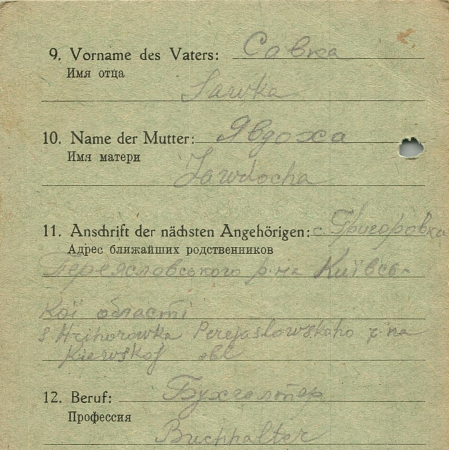 9. Vorname des Vaters: Совка
Имя отца
Sawka
10. Name der Mutter: Явдоха
Имя матери
Jawdocha
11. Anschrift der nächsten Angehörigen: с. Григоровка
Адрес ближайших родственников
Переясловського р-на Київсь-
кої області
s Hrihorowka Perejaslowskoho r na
Kiewskoj obl
12. Beruf: Бухголтер
Профессия
Buchhalter